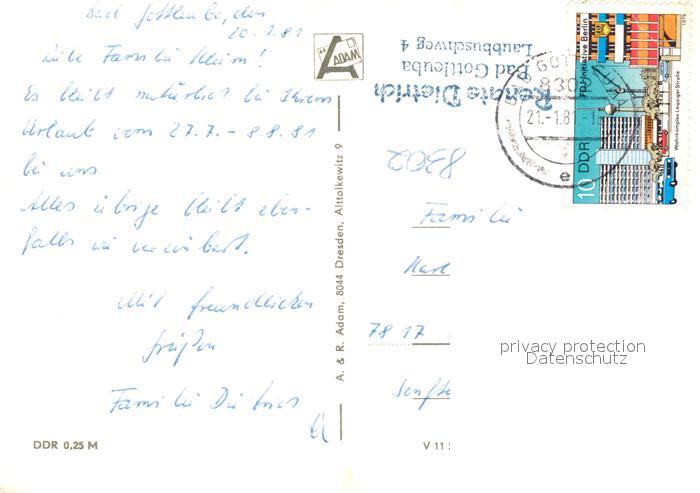 Bad Gottleuba, den
20.1.81
Liebe Familie Kleim!
Es bleibt natürlich bei Ihrem
Urlaub vom 27.7. - 8.8.81
bei uns.
Alles übrige bleibt eben-
falls wie vereinbart.
Mit freundlichen
Grüßen
Familie Dietrich
DDR 0,25 M
ADAM
A. & R. Adam, 8044 Dresden, Alttolkewitz 9
V 11
Renate Dietrich
Bad Gottleuba
Laubbuschweg 4
8302
Familie
7817
Senfte
830
21.-1.81-1
e
10 DDR
FDJ-Initiative Berlin
Wohnkomplex Leipziger Straße
privacy protection
Datenschutz